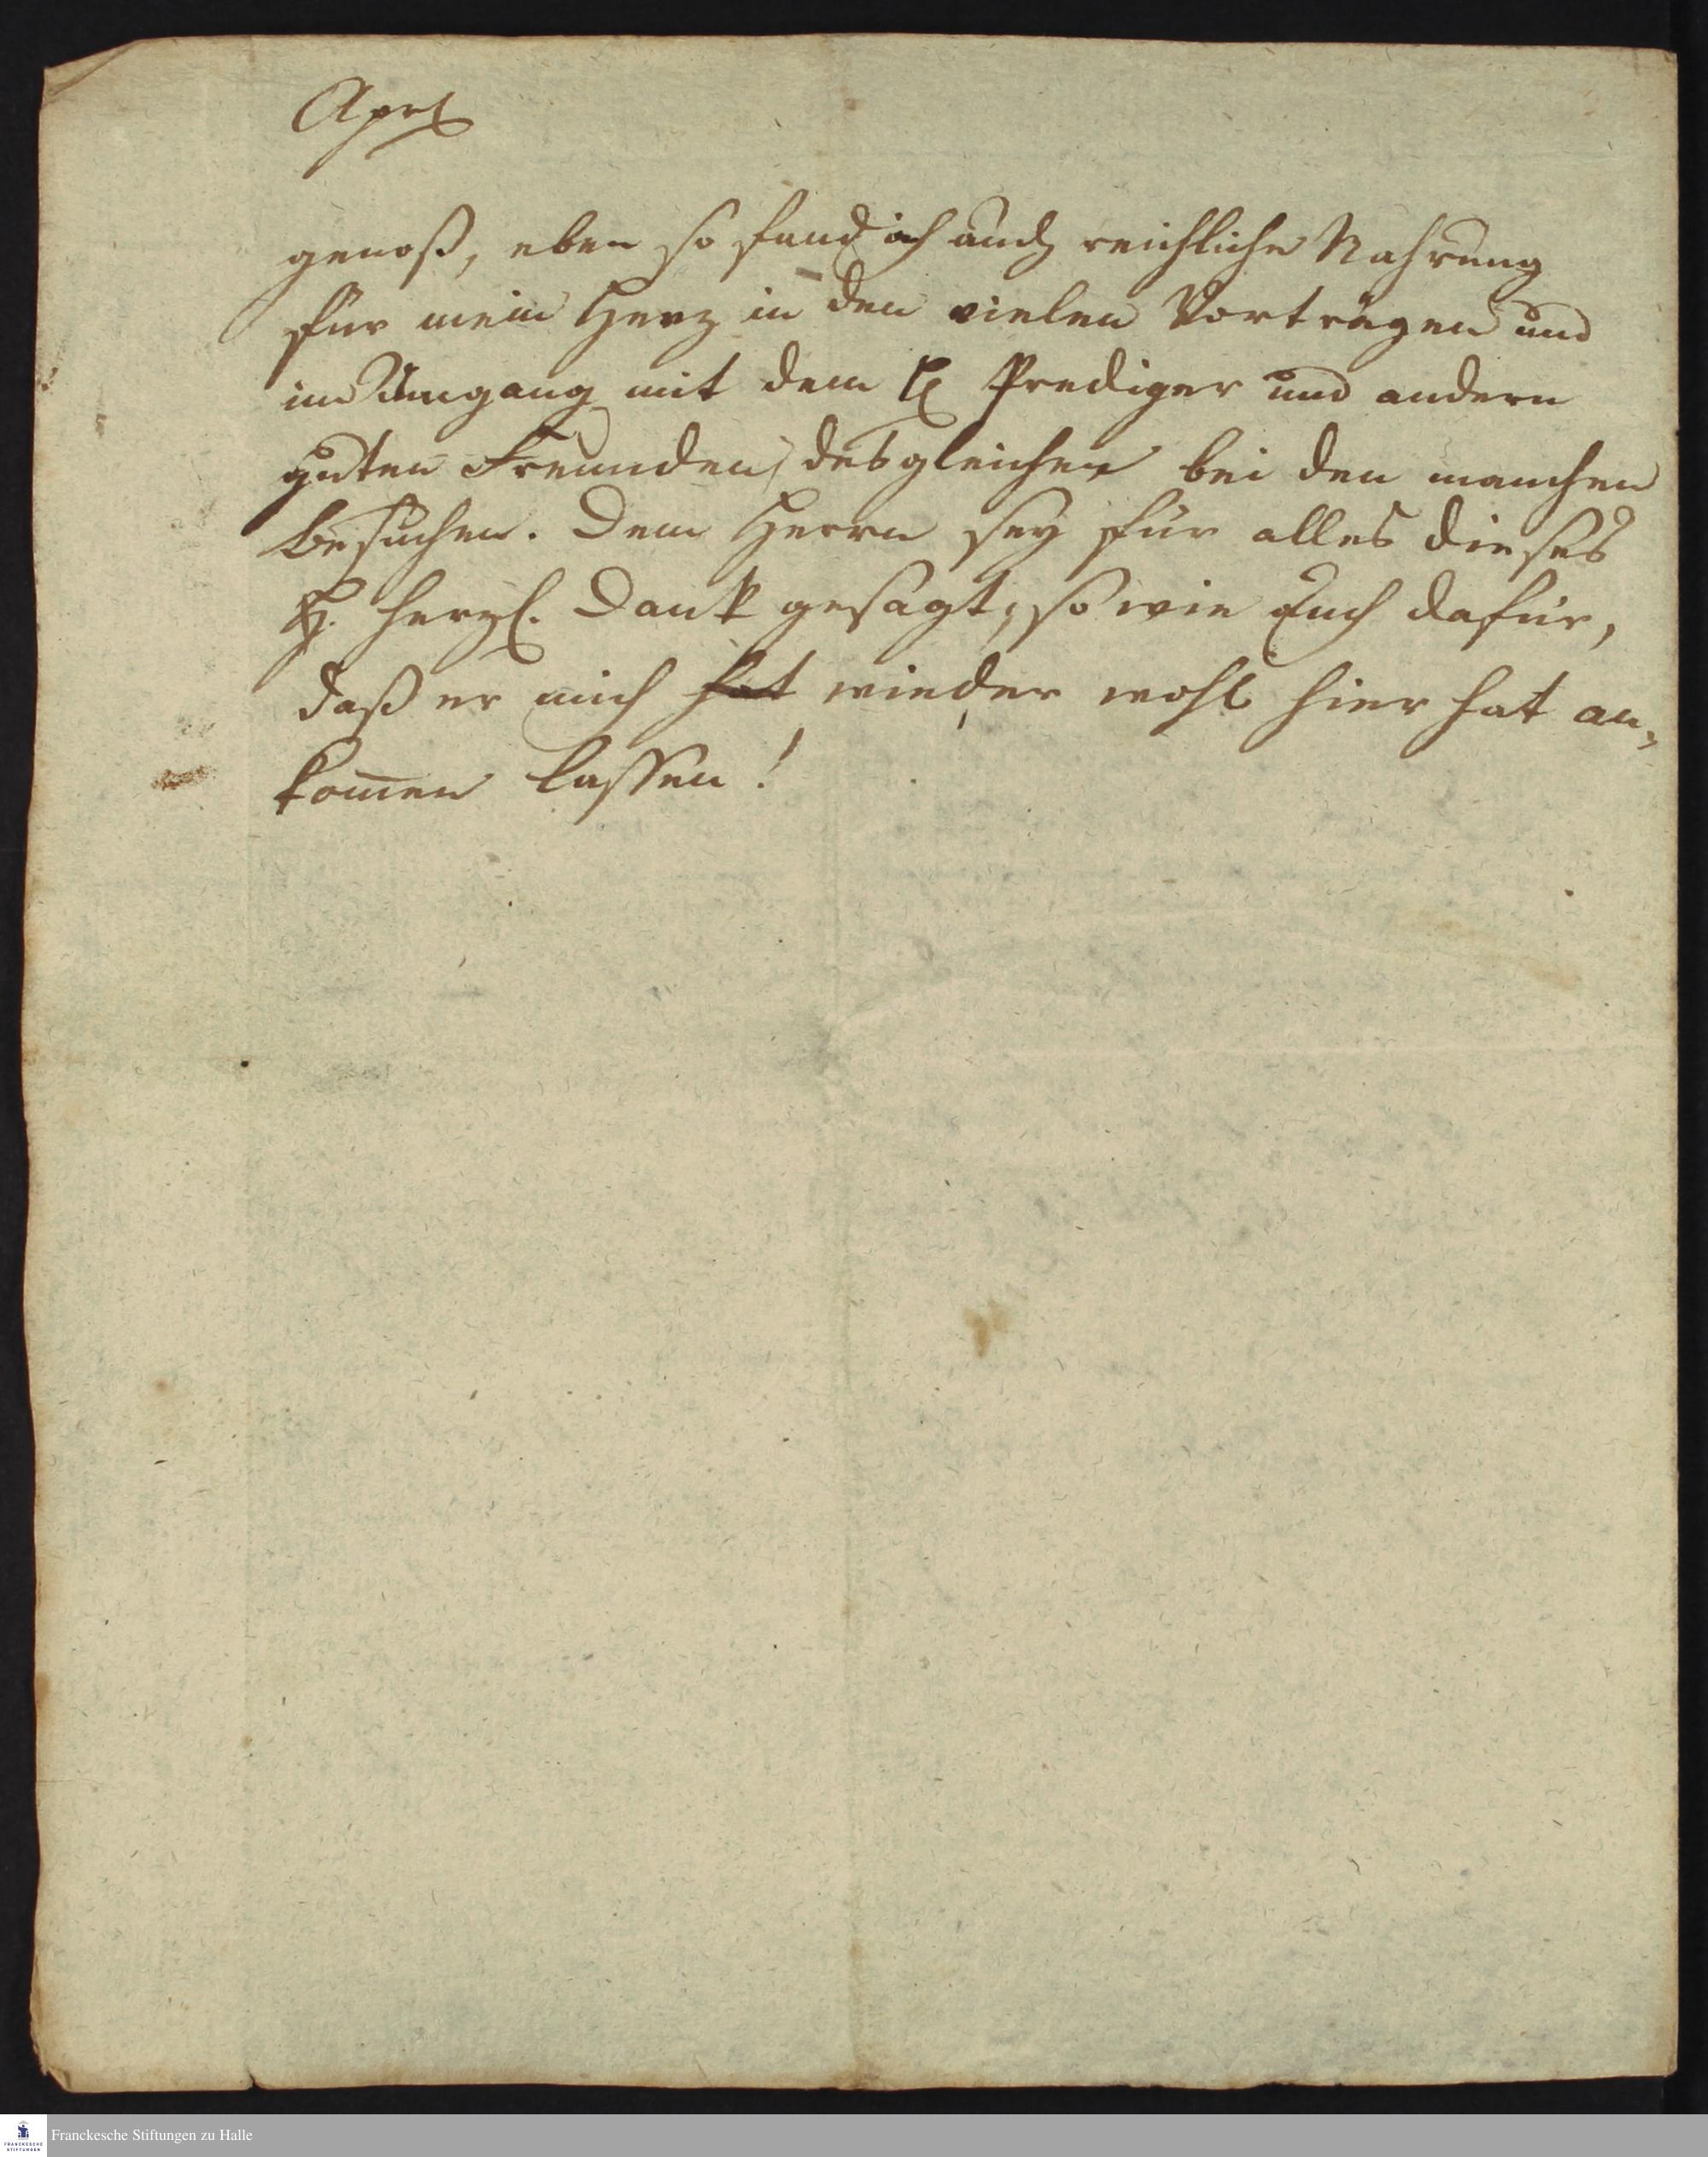 Aprl
genoß, eben so fand ich auch reichliche Nahrung
für mein Herz in den vielen Vorträgen und
im Umgang mit dem Prediger und andern
guten Freunden, desgleichen bei den manchen
Besuchen. Dem Herrn sey für alles dieses
herzl. Dank gesagt, so wie auch dafür,
daß er mich hat wieder wohl hier hat an„
kom̅en lassen!
Franckesche Stiftungen zu Halle
FRANCKESCHE
STIFTUNGEN